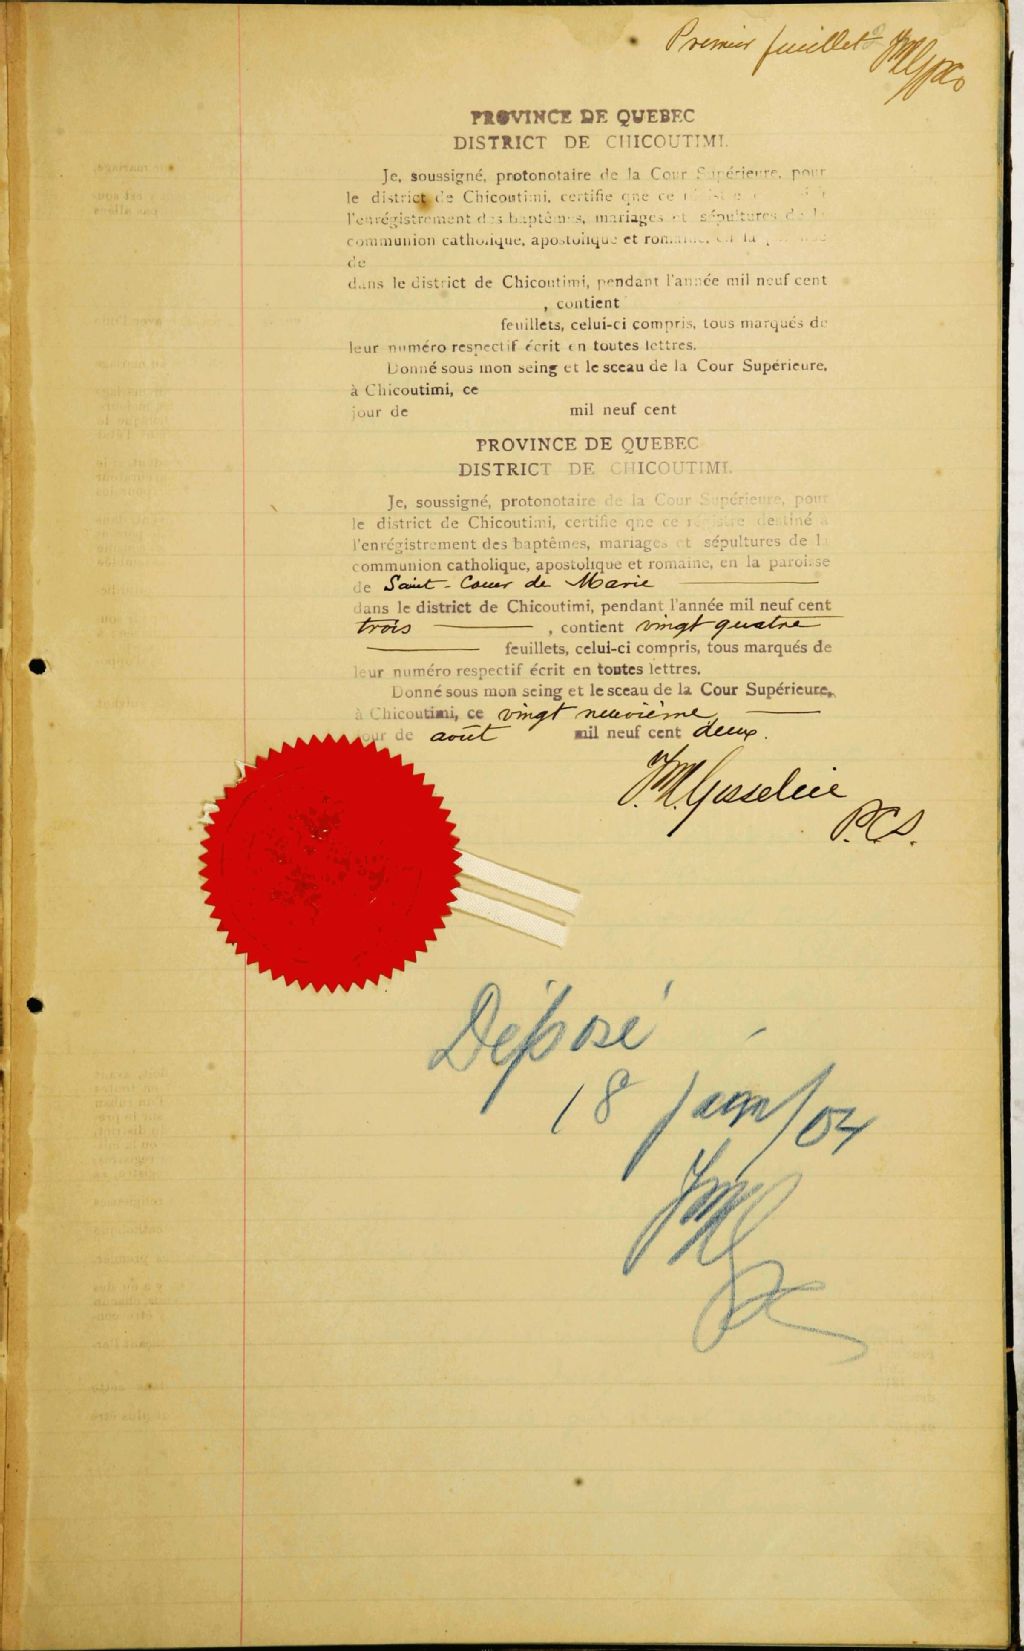 Premier feuillet
PROVINCE DE QUEBEC
DISTRICT DE CHICOUTIMI.
Je, soussigné, protonotaire de la Cour Supérieure, pour
le district de Chicoutimi, certifie que ce
l'enrégistrement des baptêmes, mariages et sépultures de la
communion catholique, apostolique et romaine, en la
de
dans le district de Chicoutimi, pendant l'année mil neuf cent
, contient
feuillets, celui-ci compris, tous marqués de
leur numéro respectif écrit en toutes lettres.
Donné sous mon seing et le sceau de la Cour Supérieure,
à Chicoutimi, ce
jour de mil neuf cent
PROVINCE DE QUEBEC
DISTRICT DE CHICOUTIMI.
Je, soussigné, protonotaire de la Cour Supérieure, pour
le district de Chicoutimi, certifie qne ce régistre destiné à
l'enrégistrement des baptêmes, mariages et sépultures de la
communion catholique, apostolique et romaine, en la paroisse
de Saint-Coeur de Marie
dans le district de Chicoutimi, pendant l'année mil neuf cent
trois , contient vingt quatre
feuillets, celui-ci compris, tous marqués de
leur numéro respectif écrit en toutes lettres.
Donné sous mon seing et le sceau de la Cour Supérieure,
à Chicoutimi, ce vingt neuvième
jour de août mil neuf cent deux.
Gosselin
P.C.S.
Déposé
18 janv/04